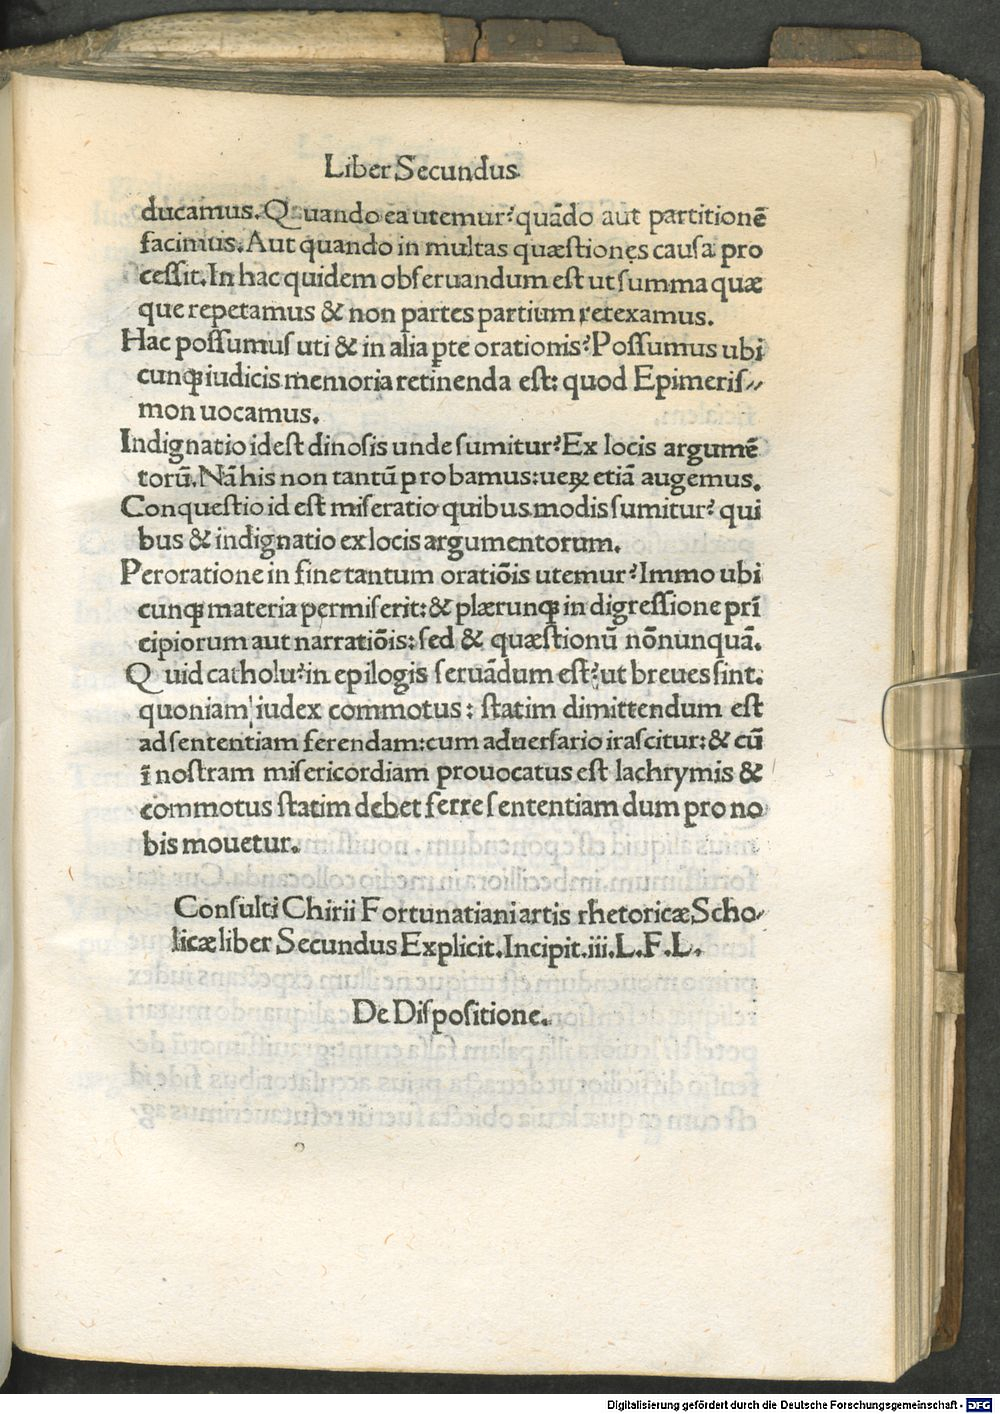 Liber Secundus
ducamus. Quando ea utemur? quādo aut partitionē
facimus. Aut quando in multas quæstiones causa pro
cessit. In hac quidem obseruandum est ut summa quæ
que repetamus & non partes partium retexamus.
Hac possumus uti & in alia ꝑte orationis? Possumus ubi
cunqꝫ iudicis memoria retinenda est: quod Epimeris⸗
mon uocamus.
Indignatio id est dinosis unde sumitur? Ex locis argumē
torū. Nā his non tantū probamus: ueꝝ etiā augemus.
Conquestio id est miseratio quibus modis sumitur? qui
bus & indignatio ex locis argumentorum.
Peroratione in fine tantum oratiōis utemur? Immo ubi
cunqꝫ materia permiserit: & plærunqꝫ in digressione prī
cipiorum aut narratiōis: sed & quæstionū nōnunquā.
Quid catholu? in epilogis seruādum est? ut breues sint.
quoniam iudex commotus: statim dimittendum est
ad sententiam ferendam: cum aduersario irascitur: & cū
ī nostram misericordiam prouocatus est lachrymis &
commotus statim debet ferre sententiam dum pro no
bis mouetur.
Consulti Chirii Fortunatiani artis rhetoricæ Scho⸗
licæ liber Secundus Explicit. Incipit. iii. L. F. L.
De Dispositione.
Digitalisierung gefördert durch die Deutsche Forschungsgemeinschaft - DFG